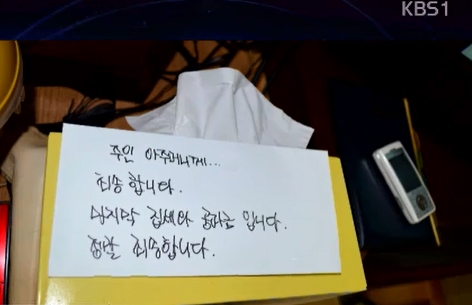 KBS1
주인 아주머니께...
죄송합니다.
마지막 집세와 공과금 입니다.
정말 죄송합니다.